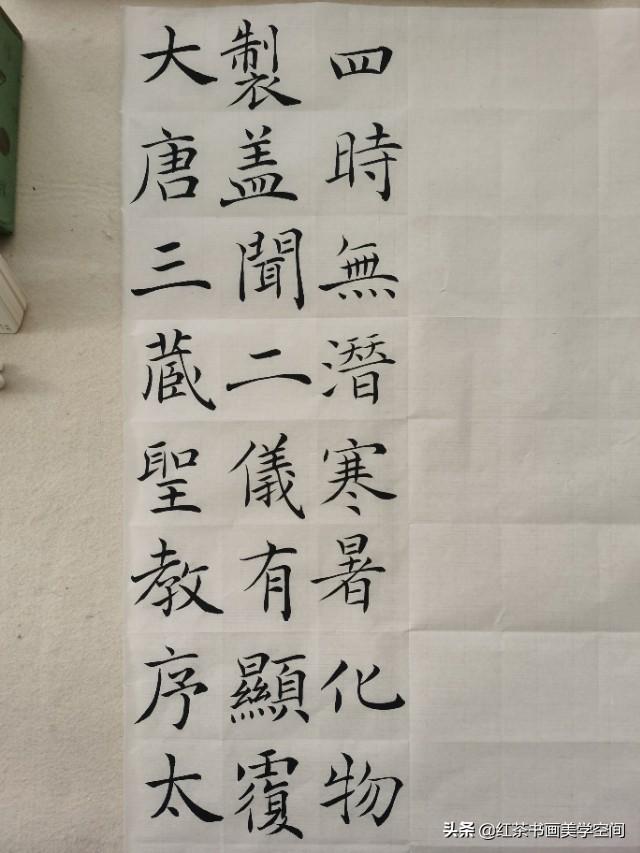 大唐三蔵聖教序太
製盖聞二儀有顯覆
四時無潛寒暑化物
头条 @红茶书画美学空间